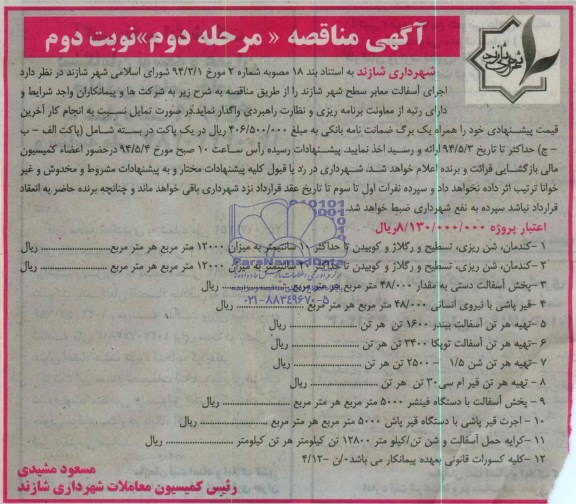 آگهی مناقصه « مرحله دوم»نوبت دوم
شهرداری شازند به استناد بند ۱۸ مصوبه شماره ۲ مورخ ۹۴/۳/۱ شورای اسلامی شهر شازند در نظر دارد
اجرای آسفالت معابر سطح شهر شازند را از طریق مناقصه به شرح زیر به شرکت ها و پیمانکاران واجد شرایط و
دارای رتبه از معاونت برنامه ریزی و نظارت راهبردی واگذار نماید.در صورت تمایل نسبت به انجام کار آخرین
قیمت پیشنهادی خود را همراه یک برگ ضمانت نامه بانکی به مبلغ ۴۰۶/۵۰۰/۰۰۰ ریال در یک پاکت در بسته شامل (پاکت الف – ب
– ج) حداکثر تا تاریخ ۹۴/۵/۳ ارائه و رسید اخذ نمایید. پیشنهادات رسیده رأس ساعت ۱۰ صبح مورخ ۹۴/۵/۴ درحضور اعضاء کمیسیون
مالی بازگشایی قرائت و برنده اعلام خواهد شد. شهرداری در رد یا قبول کلیه پیشنهادات مختار و به پیشنهادات مشروط و مخدوش و غیر
خوانا ترتیب اثر داده نخواهد داد و سپرده نفرات اول تا سوم تا تاریخ عقد قرارداد نزد شهرداری باقی خواهد ماند و چنانچه برنده حاضر به انعقاد
قرارداد نباشد سپرده به نفع شهرداری ضبط خواهد شد.
اعتبار پروژه ۸/۱۳۰/۰۰۰/۰۰۰ریال
۱ -کندمان، شن ریزی، تسطیح و رگلاژ و کوبیدن تا حداکثر ۱۰ سانتیمتر به میزان ۱۲۰۰۰ متر مربع هر متر مربع.................. ریال
۲ -کندمان، شن ریزی، تسطیح و رگلاژ و کوبیدن تا حداکثر سانتیمتر به میزان ۱۲۰۰۰ متر مربع هر متر مربع .................. ریال
۳ -پخش آسفالت دستی به مقدار ۴۸/۰۰۰ متر مربع هر متر مربع .................. ریال
۴ -قیر پاشی با نیروی انسانی ۴۸/۰۰۰ متر مربع هر متر مربع .................. ریال
۵ -تهیه هر تن آسفالت بیندر ۱۶۰۰ تن هر تن .................. ریال
۶ -تهیه هر تن آسفالت توپکا ۳۴۰۰ تن هر تن .................. ریال
۷ -تهیه هر تن شن ۱/۵ – ۲۵۰۰ تن هر تن .................. ریال
۸ -تهیه هر تن قیر ام سی۳۰ تن هر تن .................. ریال
۹ -پخش آسفالت با دستگاه فینشر ۵۰۰۰ متر مربع هر متر مربع .................. ریال
۱۰ - اجرت قیر پاشی با دستگاه قیر پاش ۵۰۰۰ متر مربع هر متر مربع .................. ریال
۱۱ -کرایه حمل آسفالت و شن تن/کیلو متر ۱۲۸۰۰ تن کیلومتر هر تن کیلومتر .................. ریال
۱۲ -کلیه کسورات قانونی بعهده پیمانکار می باشد/ن -۴/۱۲
مسعود مشیدی
رئیس کمیسیون معاملات شهرداری شازند
ParsNamadData
۰۲۱-۸۸۳۴۹۶۷۰-۵